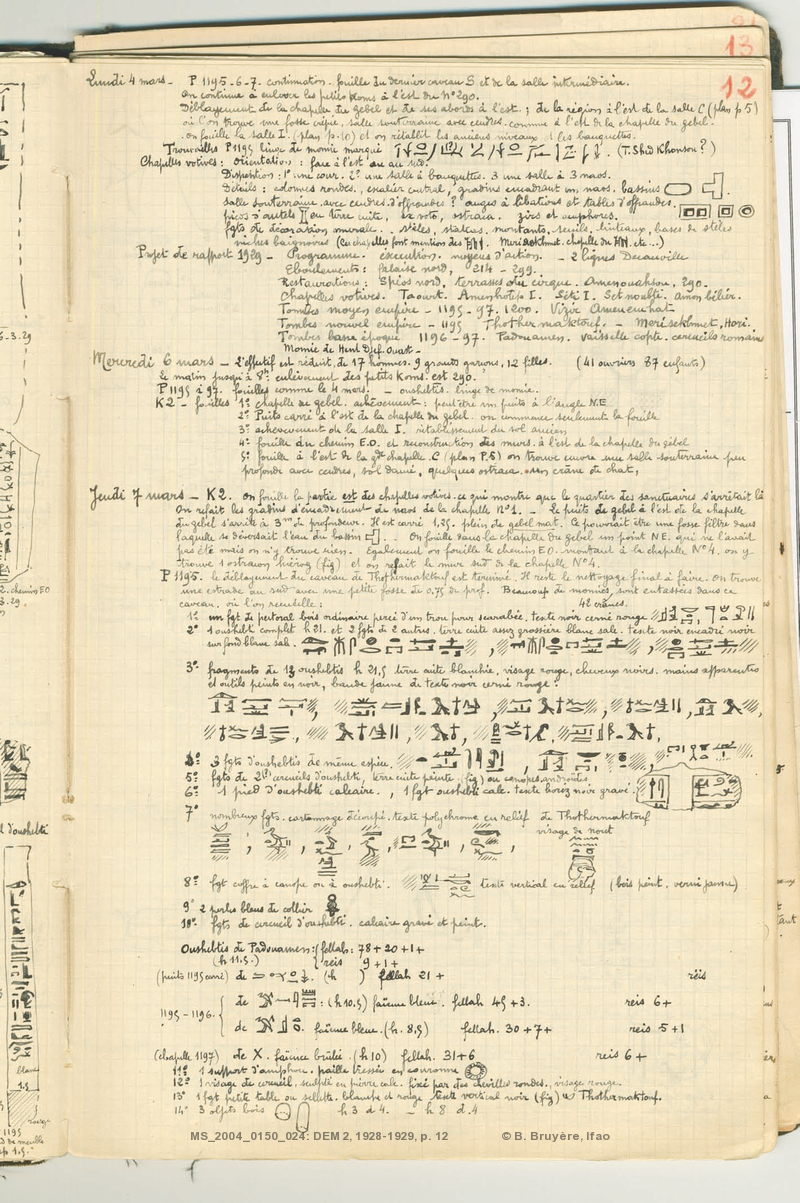 13
12
Lundi 4 mars - P 1195-6-7. continuation. fouille du dernier caveau S et de la salle intermédiaire.
On continue à enlever les petits koms à l'est du N° 290.
Déblayement de la chapelle du gebel et de ses abords à l'est ; de la région à l'est de la salle C (plan p 5)
où l'on trouve une fosse crépie, salle souterraine avec cendres. comme à l'est de la chapelle du gebel.
on fouille la salle I. (plan p. 10) et on rétablit les anciens niveaux et les banquettes.
Trouvailles P1195 linge de momie marqué (T. Shid Khonsou ?)
Chapelles votives : orientation : face à l'est ou au sud.
Disposition : 1° une cour. 2° une salle à banquettes. 3 une salle à 3 naos.
Détails : colonnes rondes., escalier central, gradins encadrant un naos. bassins
salle souterraine. avec cendres d'offrandes ? auges à libations et tables d'offrandes.
pieds d'autels en terre cuite, ex voto, ostraca. zirs et amphores.
fgts de décoration murale. . stèles, statues. montants, seuils, linteaux, bases de stèles
niches baignoires (les chapelles font mention des . Merisekhmet. chapelle du . etc...)
Projet de rapport 1929 - Programme. exécution. moyens d'action. - 2 lignes Decauville
Eboulements : falaise nord, 214 - 299.
Restaurations : Spéos nord, terrasses du cirque. Amenouahsou, 290.
Chapelles votives. Taourt. Amenhotep I. Séti I. Setnakht. amon bélier.
Tombes moyen empire - 1195-97. 1200. Vizir Amenemhat
Tombes nouvel empire - 1195 Thothermaktouf. - Merisekhmet, Hori.
Tombes basse époque 1196-97. Padouamen. vaisselle copte. cercueils romains
Momie de Hent Djef. Ouast -
Mercredi 6 mars - L'effectif est réduit de 17 hommes. 9 grands garçons, 12 filles. (41 ouvriers 87 enfants)
Le matin jusqu'à 8h. enlèvement des petits koms. est 290.
P 1195 à 97. fouilles comme le 4 mars. - oushebtis. linge de momie.
K2 - fouilles 1° chapelle du gebel. achèvement : peut être un puits à l'angle N.E
2° Puits carré à l'est de la chapelle du gebel. on commence seulement la fouille
3° achèvement de la salle I. rétablissement du sol ancien
4° fouille du chemin E.O. et reconstruction des murs. à l'est de la chapelle du gebel
5° fouille à l'est de la gde chapelle C (plan P.5) on trouve encore une salle souterraine peu
profonde avec cendres, sol damé, quelques ostraca. un crâne de chat,
Jeudi 7 mars - K2. On fouille la partie est des chapelles votives. ce qui montre que le quartier des sanctuaires s'arrêtait là
On refait les gradins d'encadrement du naos de la chapelle N°1. - Le puits du gebel à l'est de la chapelle
du gebel s'arrête à 3m de profondeur. Il est carré 1,25. plein de gebel mat. Ce pouvait être une fosse filtre dans
laquelle se déversait l'eau du bassin . - On fouille dans la chapelle du gebel un point NE. qui ne l'avait
pas été mais on n'y trouve rien. Egalement on fouille le chemin EO. montant à la chapelle N°4. on y
trouve 1 ostracon hiérog (fig) et on refait le mur sud de la chapelle N°4.
P 1195. le déblayement du caveau de Thothermaktouf est terminé. Il reste le nettoyage final à faire. On trouve
une estrade au sud avec une petite fosse de 0.75 de prof. Beaucoup de momies, sont entassées dans ce
caveau, où l'on recueille : 42 crânes.
1° un fgt de pectoral bois ordinaire percé d'un trou pour scarabée. texte noir cerné rouge
2° 1 oushebti complet h 21. et 2 fgts de 2 autres. terre cuite assez grossière blanc sale. texte noir encadré noir
sur fond blanc sale.
3° fragments de 13 oushebtis h 21,5 terre cuite blanchie, visage rouge, cheveux noirs. mains apparentes
et outils peints en noir, bande jaune de texte noir cerné rouge :
4° 3 fgts d'oushebtis de même espèce.
5° fgts de 2 cercueils d'oushebti, terre cuite peinte (fig) ou canopes androïdes.
6° 1 pied d'oushebti calcaire. , 1 fgt oushebti calc. texte horiz noir gravé.
7° nombreux fgts. cartonnage découpé. texte polychrome en relief de Thothermaktouf
visage de nout
8° fgt coffre à canope ou à oushebti. texte vertical en relief (bois peint. verni jaune)
9° 2 perles bleues de collier
10° fgts de cercueil d'oushebti. calcaire gravé et peint.
Oushebtis de Padouamen : fellah : 78 + 20 + 1 +
(h 11.5) reis 9 + 1 +
(puits 1195 carré) de . (h ) fellah 21 + réis
1195-1196. de : (h 10.5) faïence bleue. fellah 45 + 3. reis 6 +
de . faïence bleue. (h. 8,5) fellah. 30 + 7 + reis 5 + 1
(chapelle 1197) de X. faïence brûlée. (h 10) fellah. 31 + 6 reis 6 +
11° 1 support d'amphore. paille tressée en couronne
12° 1 visage de cercueil, sculpté en pierre calc. fixé par des chevilles rondes., visage rouge.
13° 1 fgt petite table ou sellette. blanche et rouge texte vertical noir (fig) de Thothermaktouf.
14° 3 objets bois h 3 d 4. - h 8 d. 4
MS_2004_0150_024: DEM 2, 1928-1929, p. 12 © B. Bruyère, Ifao